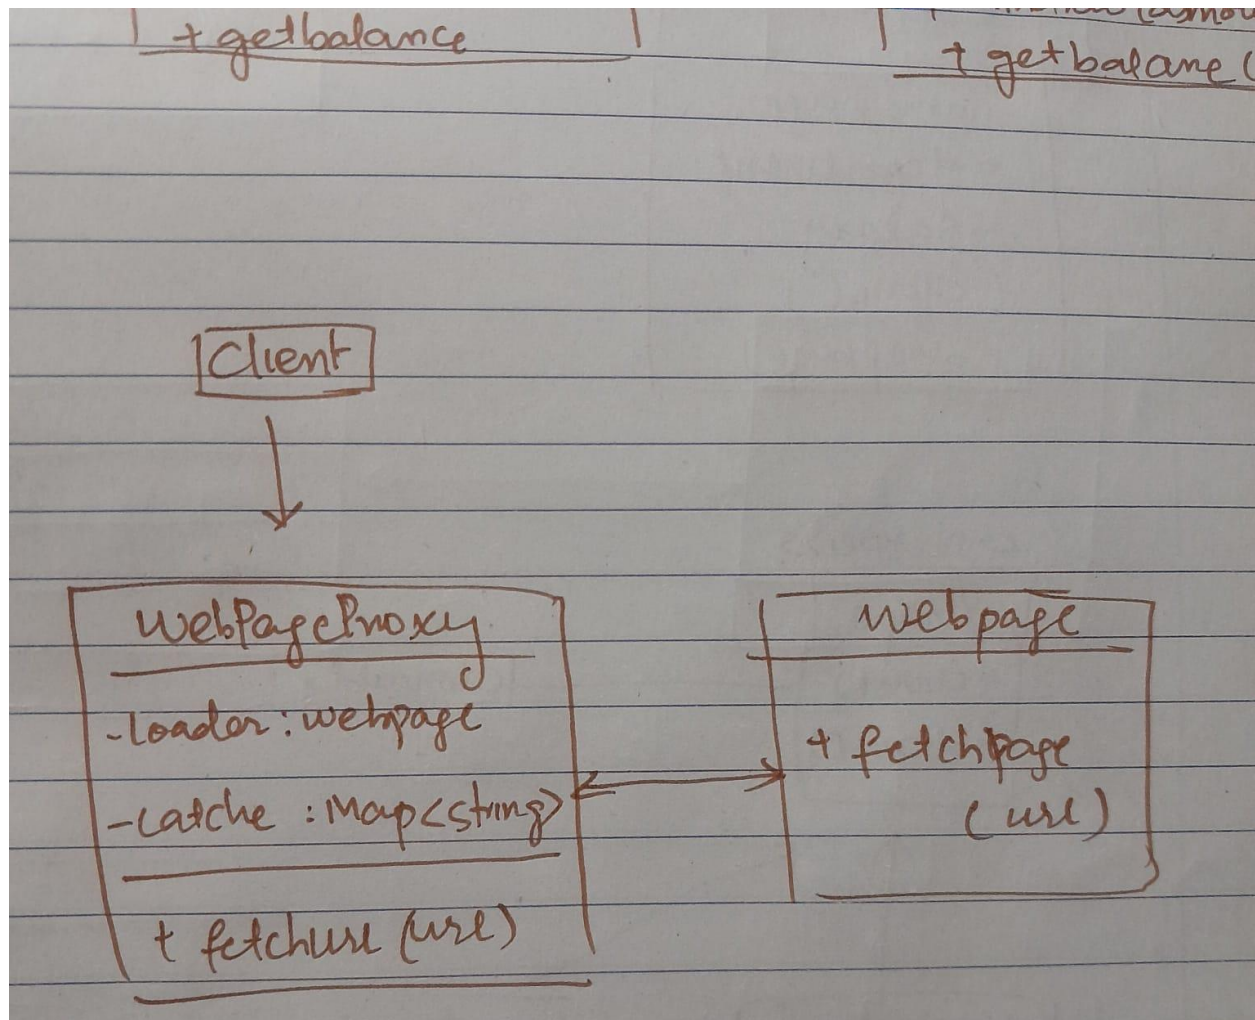 + getbalance
+ getbalane (
Client
WebPageProxy
- loader : webpage
- catche : Map<string>
+ fetchurl (url)
webpage
+ fetchpage
(url)